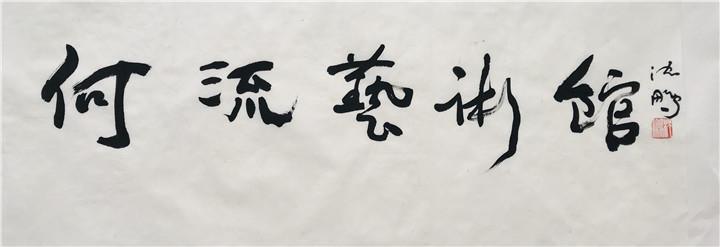 何流藝術館
沈鵬